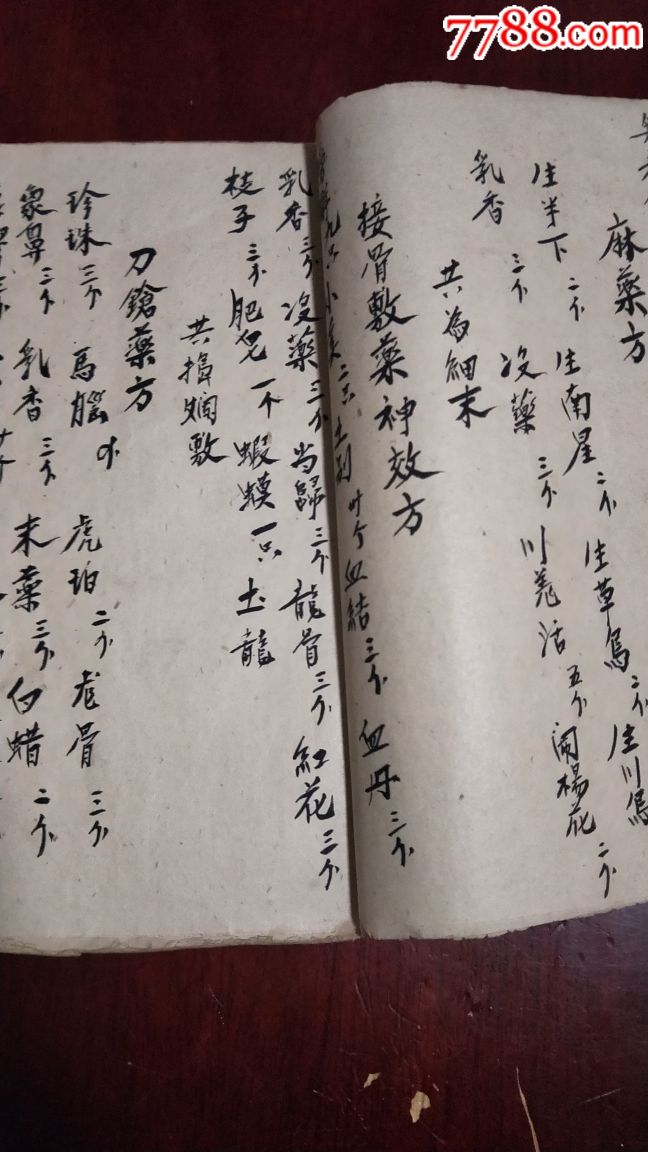 7788.com
麻藥方
生半下 二个 生南星 二个 生草烏 二个 生川烏
乳香 三个 沒藥 三个 川羌活 五个 闹楊花 二个
共為細末
接骨敷藥神效方
血結 三个 血丹 三个
乳香 三个 沒藥 三个 当歸 三个 龍骨 三个 紅花 三个
枝子 三个 肥皂 一个 蝦蟆 一只 土龍
共搗爛敷
刀鎗藥方
珍珠 三个 馬腦 虎珀 二个 龙骨 三个
象鼻 三个 乳香 三个 末藥 三个 白蜡 二个